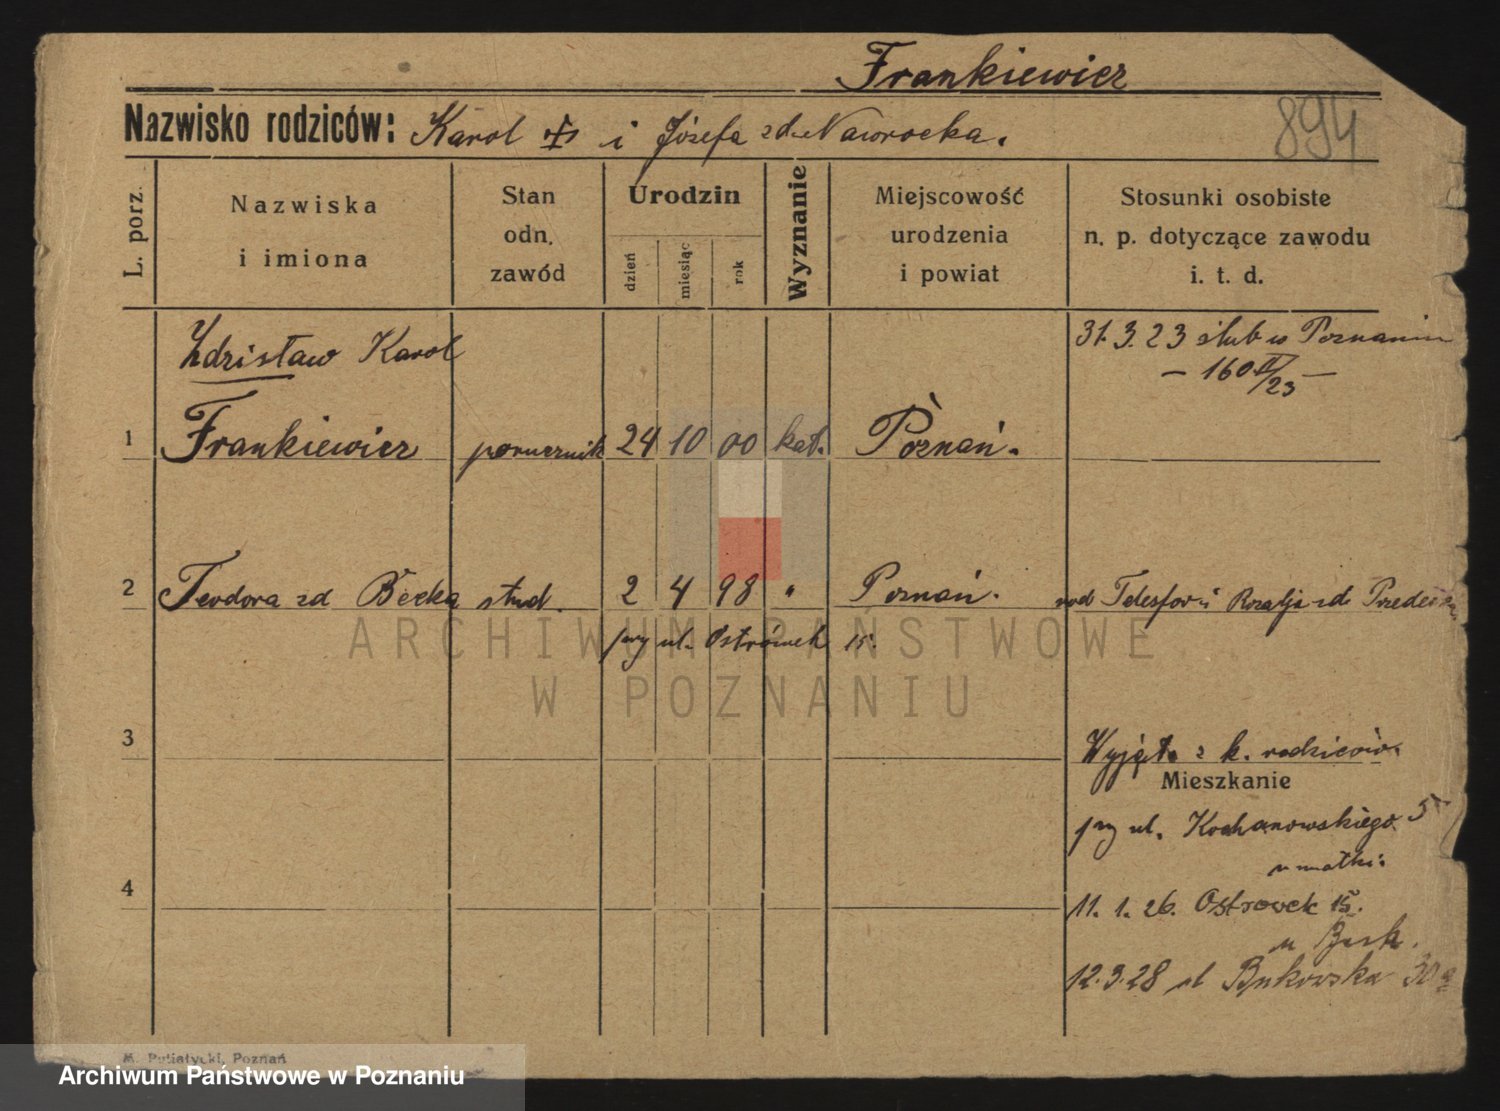 Frankiewicz
894
Nazwisko rodziców: Karol i Józefa zd. Nawrocka.
L. porz.
Nazwiska i imiona
Stan odn. zawód
Urodzin
dzień
miesiąc
rok
Wyznanie
Miejscowość urodzenia i powiat
Stosunki osobiste n. p. dotyczące zawodu i. t. d.
Zdzisław Karol
31.3.23 ślub w Poznaniu
– 160 II/23 –
1 Frankiewicz porucznik 24 10 00 kat. Poznań.
2 Teodora zd Becka stud. 2 4 98 " Poznań. rod Telesfor i Rozalja zd.
przy ul. Ostrówek 15.
ARCHIWUM PAŃSTWOWE
W POZNANIU
3
Wyjęto z k. rodziców.
Mieszkanie
przy ul. Kochanowskiego 5
u matki.
4
11. 1. 26. Ostrówek 15.
u
12.3.28 ul Bukowska 30
M. Putiatycki, Poznań
Archiwum Państwowe w Poznaniu